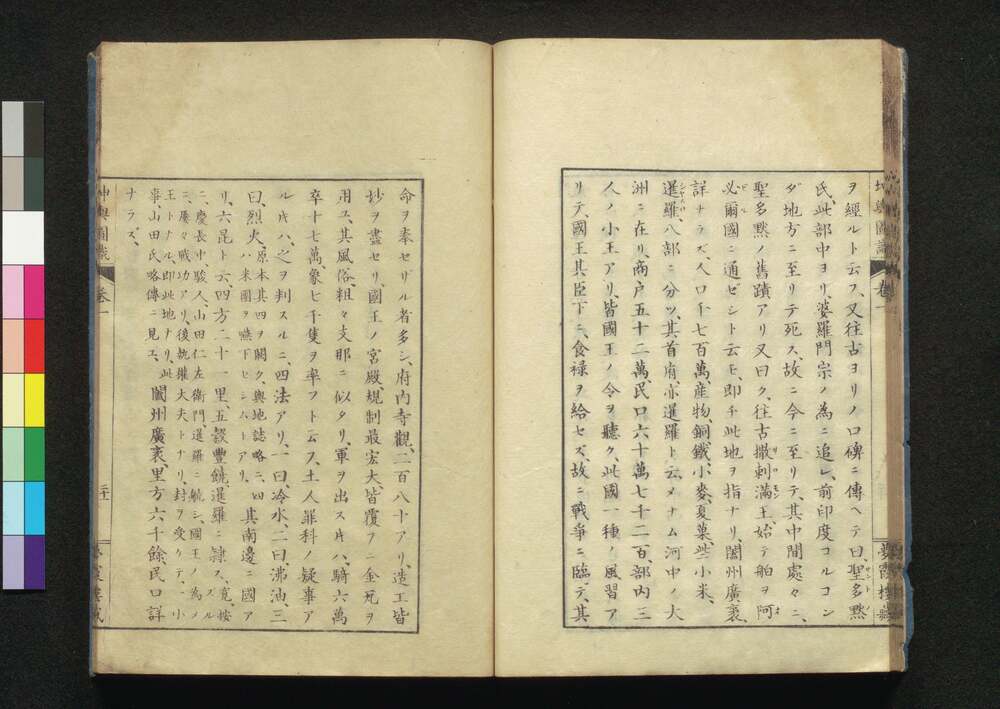 ヲ經ルト云フ、又往古ヨリノ口碑ニ傳ヘテ曰、聖多黙
氏、此部中ヨリ、婆羅門宗ノ為ニ追レ、前印度コルコン
ダ地方ニ至リテ死ス、故ニ今ニ至リテ、其中間處々ニ、
聖多黙ノ舊蹟アリ又曰ク、往古撒剌満王、始テ舶ヲ阿
必爾國ニ通ゼシト云モ、即チ此地ヲ指ナリ、闔州廣袤、
詳ナラズ、人口千七百萬、産物、銅鐵、小麥、夏菓、些小米、
暹羅八部ニ分ツ、其首府亦暹羅ト云、メナム河中ノ大
洲ニ在リ、商戸五十二萬、民口六十萬七千二百、部内三
人ノ小王アリ、皆國王ノ令ヲ聽ク、此國一種ノ風習ア
リテ、國王其臣下ニ、食禄ヲ給セズ、故ニ戰爭ニ臨テ、其
命ヲ奉セザル者多シ、府内寺觀、二百八十アリ、造工皆
妙ヲ盡セリ、國王ノ宮殿、規制最宏大、皆覆フニ金瓦ヲ
用ユ、其風俗、粗々支那ニ似タリ、軍ヲ出ス時ハ、騎六萬
卒十七萬、象七千隻ヲ率フト云フ、土人罪科ノ疑事ア
ル時ハ、之ヲ判スルニ、四法アリ、一曰、冷水、二曰沸油、三
曰、烈火、原本其四ヲ闕ク、輿地誌略ニ、四
ハ米團ヲ嚥下セシムトアリ、其南邊ニ國ア
リ、六昆ト云、四方二十一里、五穀豐饒、暹羅ニ隷ス、寛按
ズル
ニ、慶長中、駿人、山田仁左衛門、暹羅ニ航シ、國王ノ為
ニ、屢々戰功アリ、後執權大夫トナリ、封ヲ受ケテ、小
王トナル、即此地ナリ、此
事、山田氏略傳ニ見エ、闔州廣袤、里方六千餘、民口詳
ナラズ、
卷一
二十一